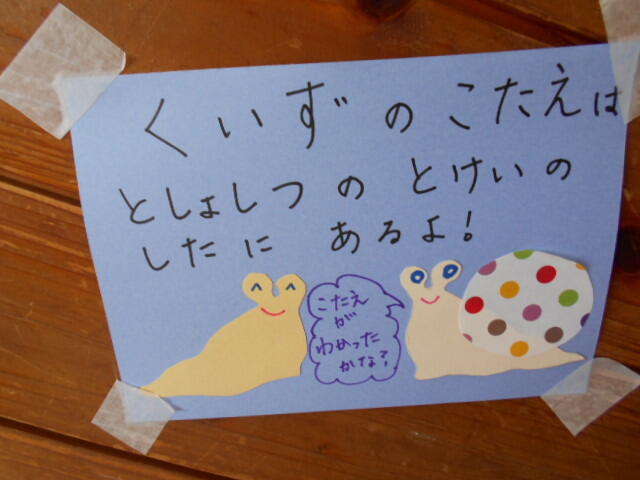 くいずのこたえは
としょしつの とけいの
したに あるよ!
こたえ
が
わかった
かな?